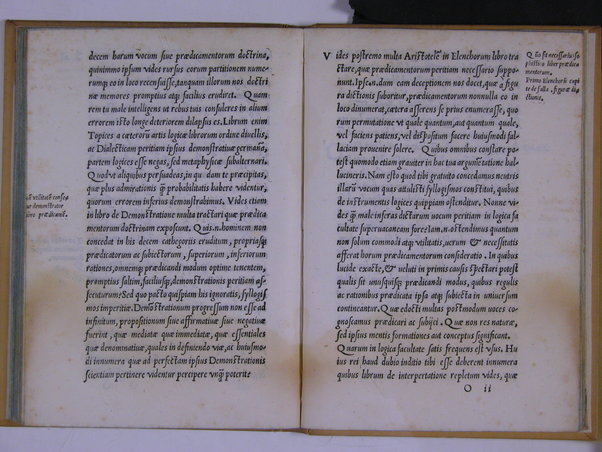 decem harum vocum siue prædicamentorum doctrina,
quinimmo ipsum vides rursus eorum partitionem nume-
rumq; eo in loco recensuisse, tanquam illorum nos doctri
næ memores promptius atq; facilius erudiret. Quam
rem tu male intelligens ut rebus tuis consuleres in alium
errorem isto longe deteriorem dilapsus es. Librum enim
Topices a cæterorū artis logicæ librorum ordine diuellis,
ac Dialecticam peritiam ipsius demonstratiuæ germanā,
partem logices esse negas, sed metaphysicæ subalternari.
Quod vt aliquibus persuadeas, in quadam te præcipitas,
quæ plus admirationis q̃ probabilitatis habere videntur,
quorum errorem inferius demonstrabimus. Vides etiam
in libro de Demonstratione multa tractari quæ prædica
mentorum doctrinam exposcunt. Quis.n.hominem non
concedat in his decem cathegoriis eruditum, propriasq;
prædicatorum ac subiectorum, superiorum, inferiorum
rationes, omnemq; prædicandi modum optime tenentem,
promptius saltim, faciliusq; demonstrationis peritiam as-
secuturum? Sed quo pacto quispiam his ignoratis, syllogis
mos imperitiæ. Demonstrationum progressum non esse ad
infinitum, propositionum siue affirmatiuæ siue negatiuæ
fuerint, quæ mediatæ quæ immediatæ, quæ essentiales
quæ denominatiuæ, quales in definiendo viæ, ac huiusmo-
di innumera quæ ad perfectam ipsius Demonstrationis
scientiam pertinere videntur percipere vnq̃ poterit
Vides postremo multa Aristotelē in Elenchorum libro tra
ctare, quæ prædicamentorum peritiam necessario suppo-
nunt. Ipse.n.dum eam deceptionem nos docet, quæ a figu
ra dictionis suboritur, prædicamentorum nonnulla eo in
loco dinumerat, cætera asserens se prius enumerasse, quo
rum permutatione vt quale quantum, aut quantum quale,
vel faciens patiens, vel dispositum facere huiusmodi fal-
laciam prouenire solere. Quibus omnibus constare po-
test quomodo etiam grauiter in hac tua argumētatione hal-
lucineris. Nam esto quod tibi gratuito concedamus neutris
illarū vocum quas attulisti syllogismos constitui, quibus
de instrumentis logices quippiam ostenditur. Nonne vi-
des q̃ male inferas dictarum uocum peritiam in logica fa
cultate superuacaneam fore? Iam.n.ostendimus quantum
non solum commodi atq; vtilitatis, uerum & necessitatis
afferat horum prædicamentorum consideratio. In quibus
lucide exacte, & veluti in primis causis spectari potest
qualis sit unusquisq; prædicandi modus, quibus regulis
ac rationibus prædicata ipsa atq; subiecta in uniuersum
contineantur. Quæ edocti multas postmodum uoces co-
gnoscamus prædicari ac subijci. Quæ non res naturæ,
sed ipsius mentis formationes aut conceptus significant.
Quarum in logica facultate satis frequens est vsus. Hu
ius rei haud dubio inditio tibi esse deberent innumera
quibus librum de interpretatione repletum vides, quæ
O ii